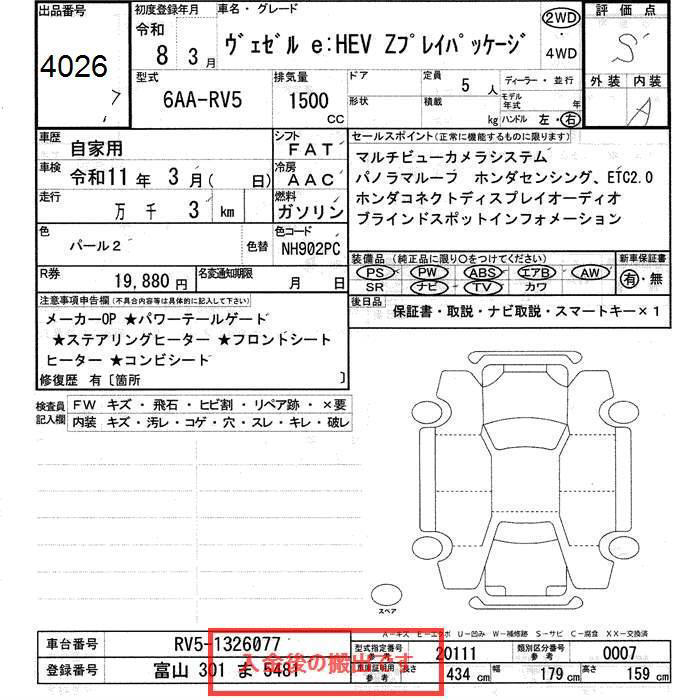 出品番号
4026
初度登録年月
令和
8 3月
車名・グレード
ヴェゼル e:HEV Zプレイパッケージ
2WD
・
4WD
評価点
S
外装 内装
A
型式
6AA-RV5
排気量
1500
CC
ドア
形状
定員
5 人
積載
kg
ディーラー・並行
モデル年式 年
ハンドル 左・右
車歴
自家用
シフト
FAT
車検
令和11年 3月( 日)
冷房
AAC
走行
万 千 3 km
燃料
ガソリン
色
パール2
色替
色コード
NH902PC
R券
19,880円
名変通知期限
月 日
セールスポイント(正常に機能するものに限ります)
マルチビューカメラシステム
パノラマルーフ ホンダセンシング、ETC2.0
ホンダコネクトディスプレイオーディオ
ブラインドスポットインフォメーション
装備品(純正品に限り○をつけてください)
PS PW ABS エアB AW
SR ナビ TV カワ
新車保証書
有・無
後日品
保証書・取説・ナビ取説・スマートキー×1
注意事項申告欄(不具合内容等は具体的に記入して下さい)
メーカーOP ★パワーテールゲート
★ステアリングヒーター ★フロントシート
ヒーター ★コンビシート
修復歴 有〔箇所 〕
検査員
記入欄
FW キズ・飛石・ヒビ割・リペア跡・×要
内装 キズ・汚レ・コゲ・穴・スレ・キレ・破レ
スペア
A－キズ E－エクボ U－凹み W－補修跡 S－サビ C－腐食 XX－交換済
車台番号
RV5-1326077
登録番号
富山 301 ま 5481
入金後の搬出です
型式指定番号
参考
20111
類別区分番号
参考
0007
車庫証明用
参考
長さ
434 cm
幅
179 cm
高さ
159 cm